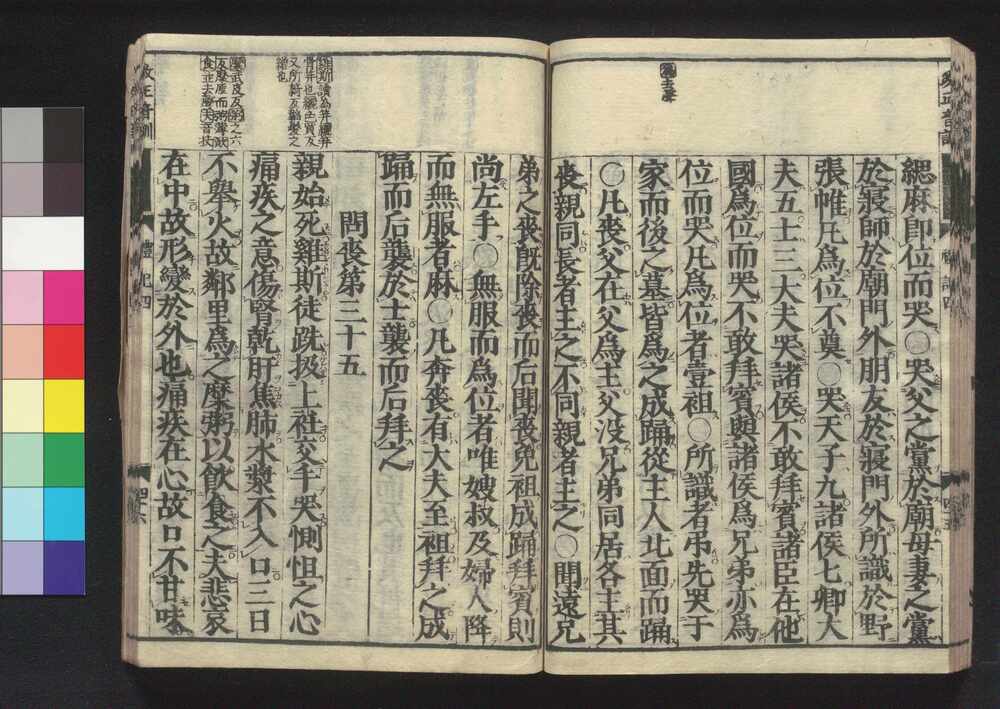 緦麻即位而哭○哭父之黨於廟母妻之黨
於寢師於廟門外朋友於寢門外所識於野
張帷凡爲位不奠○哭天子九諸侯七卿大
夫五士三大夫哭諸侯不敢拜賓諸臣在他
國爲位而哭不敢拜賓與諸侯爲兄弟亦爲
位而哭凡爲位者壹袒○所識者吊先哭于
家而後之墓皆爲之成踊從主人北面而踊
○凡喪父在父爲主父沒兄弟同居各主其
喪親同長者主之不同親者主之○聞遠兄
弟之喪旣除喪而后聞喪免袒成踊拜賓則
尚左手○無服而爲位者唯嫂叔及婦人降
而無服者麻○凡奔喪有大夫至袒拜之成
踊而后襲於士襲而后拜之
問喪第三十五
親始死雞斯徒跣扱上衽交手哭惻怛之心
痛疾之意傷腎乾肝焦肺水漿不入口三日
不舉火故鄰里爲之糜粥以飮食之夫悲哀
在中故形變於外也痛疾在心故口不甘味
禮記四